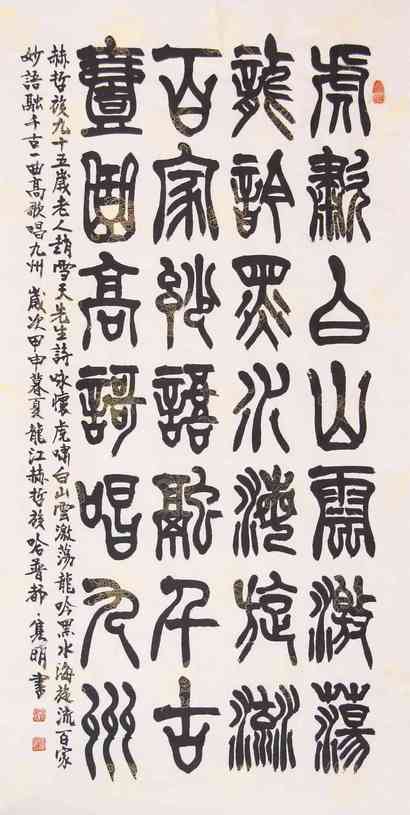 虎歗白山雲激蕩
龍訡黑水海旋流
百家妙語融千古
壹曲高謌唱九州
赫哲族九十五歲老人趙雪天先生詩咏懷虎嘯白山雲激荡龍吟黑水海旋流百家
妙語融千古一曲高歌唱九州 歲次甲申暮夏龍江赫哲族哈普都·隽明書